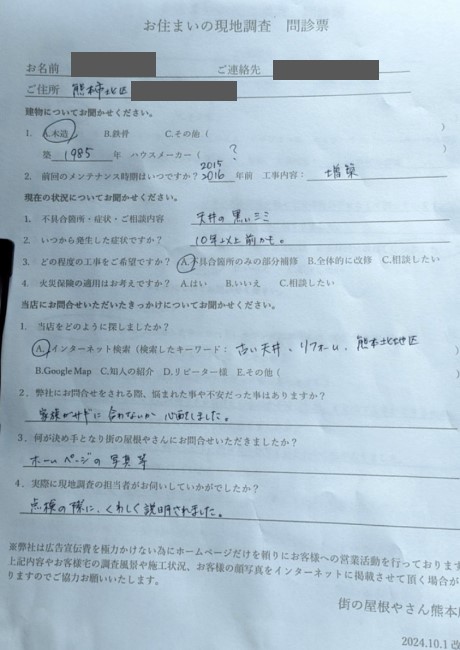 お住まいの現地調査 問診票
お名前 ご連絡先
ご住所 熊本市北区
建物についてお聞かせください。
1. A.木造 B.鉄骨 C.その他 ( )
築 1985 年 ハウスメーカー ( ? )
2015
2. 前回のメンテナンス時期はいつですか? 2016 年前 工事内容: 増築
現在の状況についてお聞かせください。
1. 不具合箇所・症状・ご相談内容 天井の黒いシミ
2. いつから発生した症状ですか? 10年以上前かも。
3. どの程度の工事をご希望ですか? A.不具合箇所のみの部分補修 B.全体的に改修 C.相談したい
4. 火災保険の適用はお考えですか? A.はい B.いいえ C.相談したい
当店にお問合せいただいたきっかけについてお聞かせください。
1. 当店をどのように探しましたか?
A.インターネット検索 (検索したキーワード: 古い天井、リフォーム、熊本北区
B.Google Map C.知人の紹介 D.リピーター様 E.その他 ( )
2. 弊社にお問合せをされる際、悩まれた事や不安だった事はありますか?
心配しました。
3. 何が決め手となり街の屋根やさんにお問合せいただきましたか?
ホームページの写真等
4. 実際に現地調査の担当者がお伺いしていかがでしたか?
点検の際に、くわしく説明されました。
※弊社は広告宣伝費を極力かけない為にホームページだけを頼りにお客様への営業活動を行っております
上記内容やお客様宅の調査風景や施工状況、お客様の顔写真をインターネットに掲載させて頂く場合が
りますのでご協力お願いいたします。
街の屋根やさん熊本
2024.10.1 改